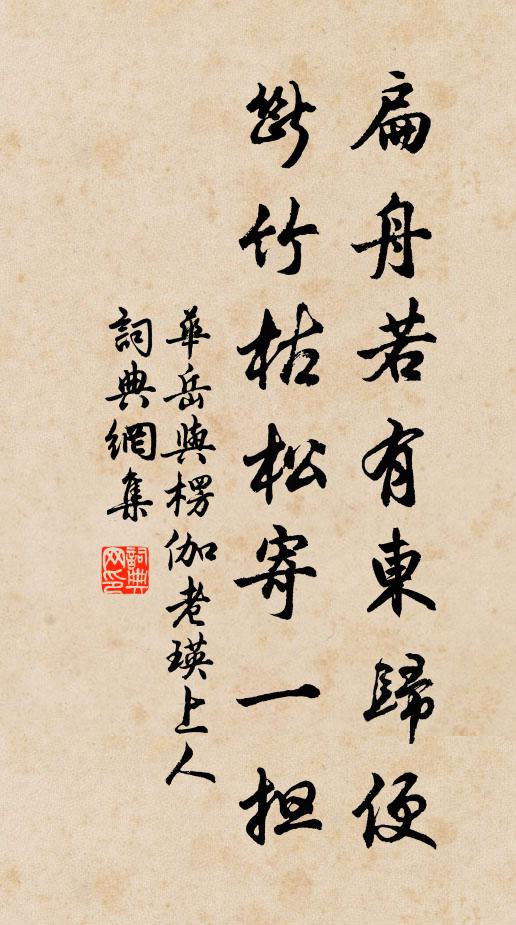 扁舟若有東歸便
斷竹枯松寄一担
華岳與楞伽老瑛上人
詞典網集
詞典网印